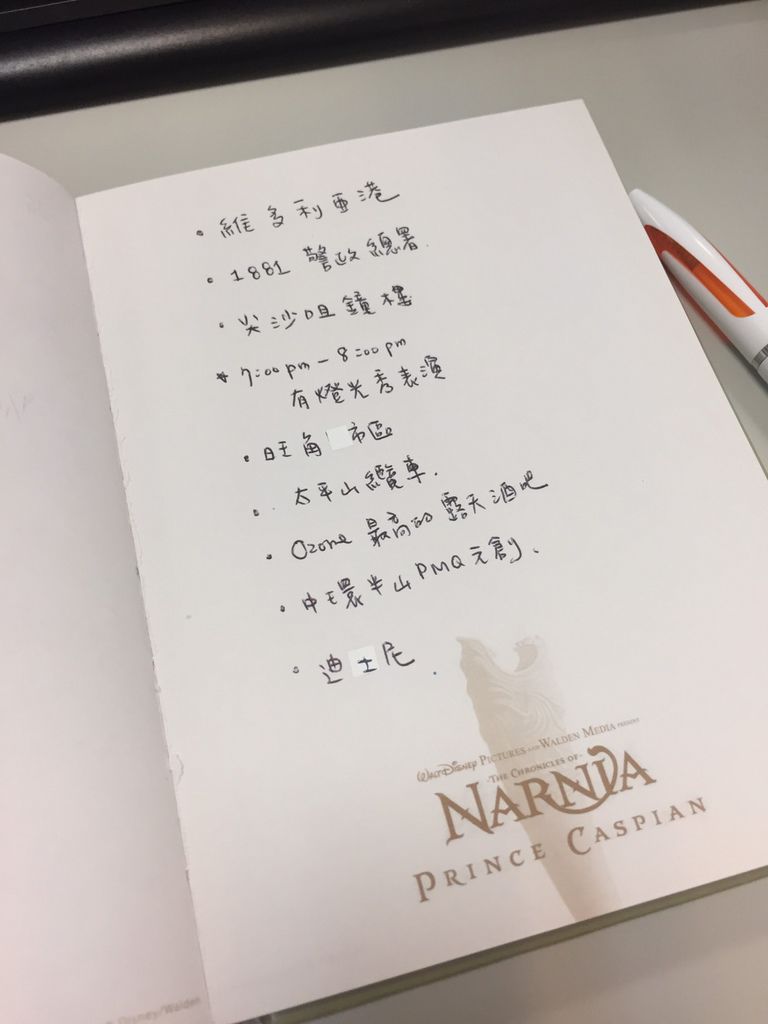 • 維多利亞港
• 1881 警政總署.
• 尖沙咀鐘樓
* 7:00 pm - 8:00 pm
有燈光秀表演
• 旺角 市區
• 太平山纜車.
• Ozone 最高的露天酒吧
• 中環半山PMQ元創、
• 迪士尼
WALT DISNEY PICTURES AND WALDEN MEDIA PRESENT
·THE CHRONICLES OF·
NARNIA
PRINCE CASPIAN
Disney/Walden